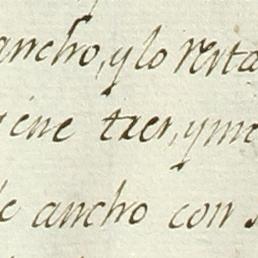 ancho, y lo resta
iene tres, y me
de ancho con